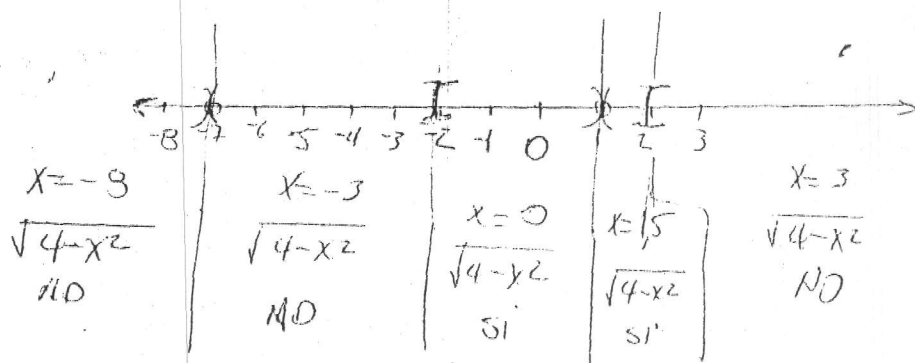 -8 -7 -6 -5 -4 -3 -2 -1 0 1 2 3
x=-9
√4-x²
NO
x=-3
√4-x²
NO
x=0
√4-x²
si
x=1,5
√4-x²
si
x=3
√4-x²
NO